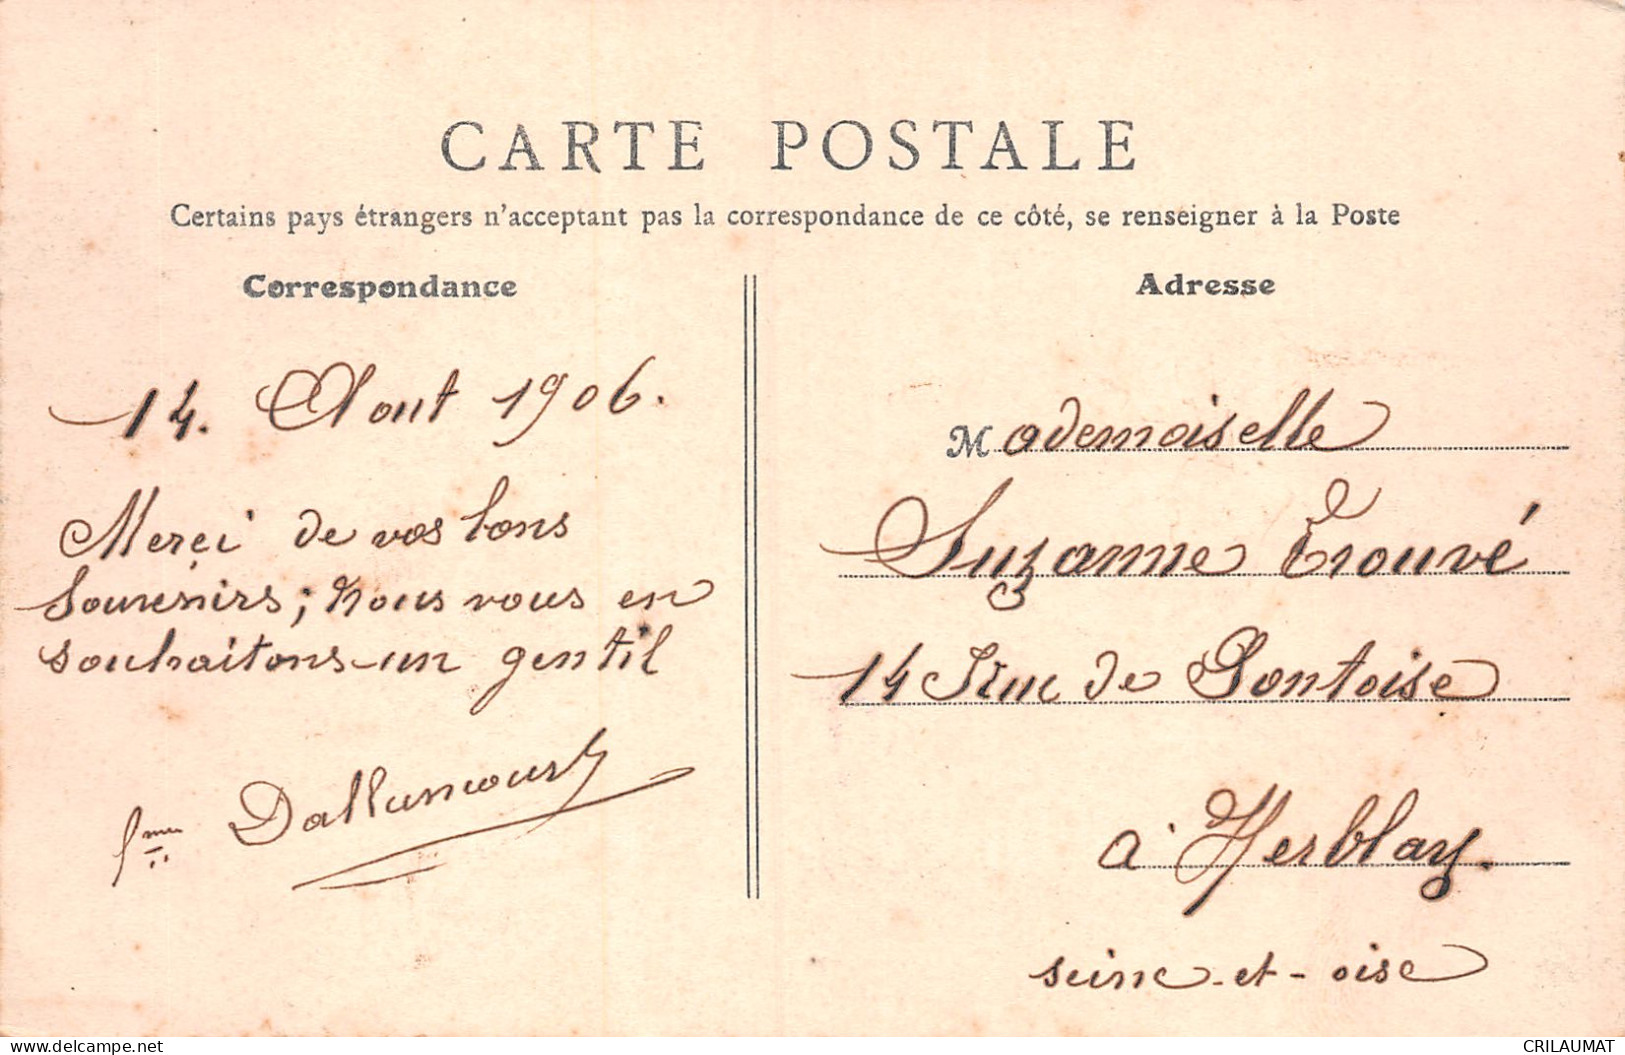 CARTE POSTALE
Certains pays étrangers n'acceptant pas la correspondance de ce côté, se renseigner à la Poste
Correspondance
14. Aout 1906.
Merçi de vos bons
Souvenirs; nous vous en
souhaitons un gentil
Adresse
Mademoiselle
Suzanne Trouvé
14 Rue de Pontoise
à Herblay.
seine-et-oise
www.delcampe.net
CRILAUMAT